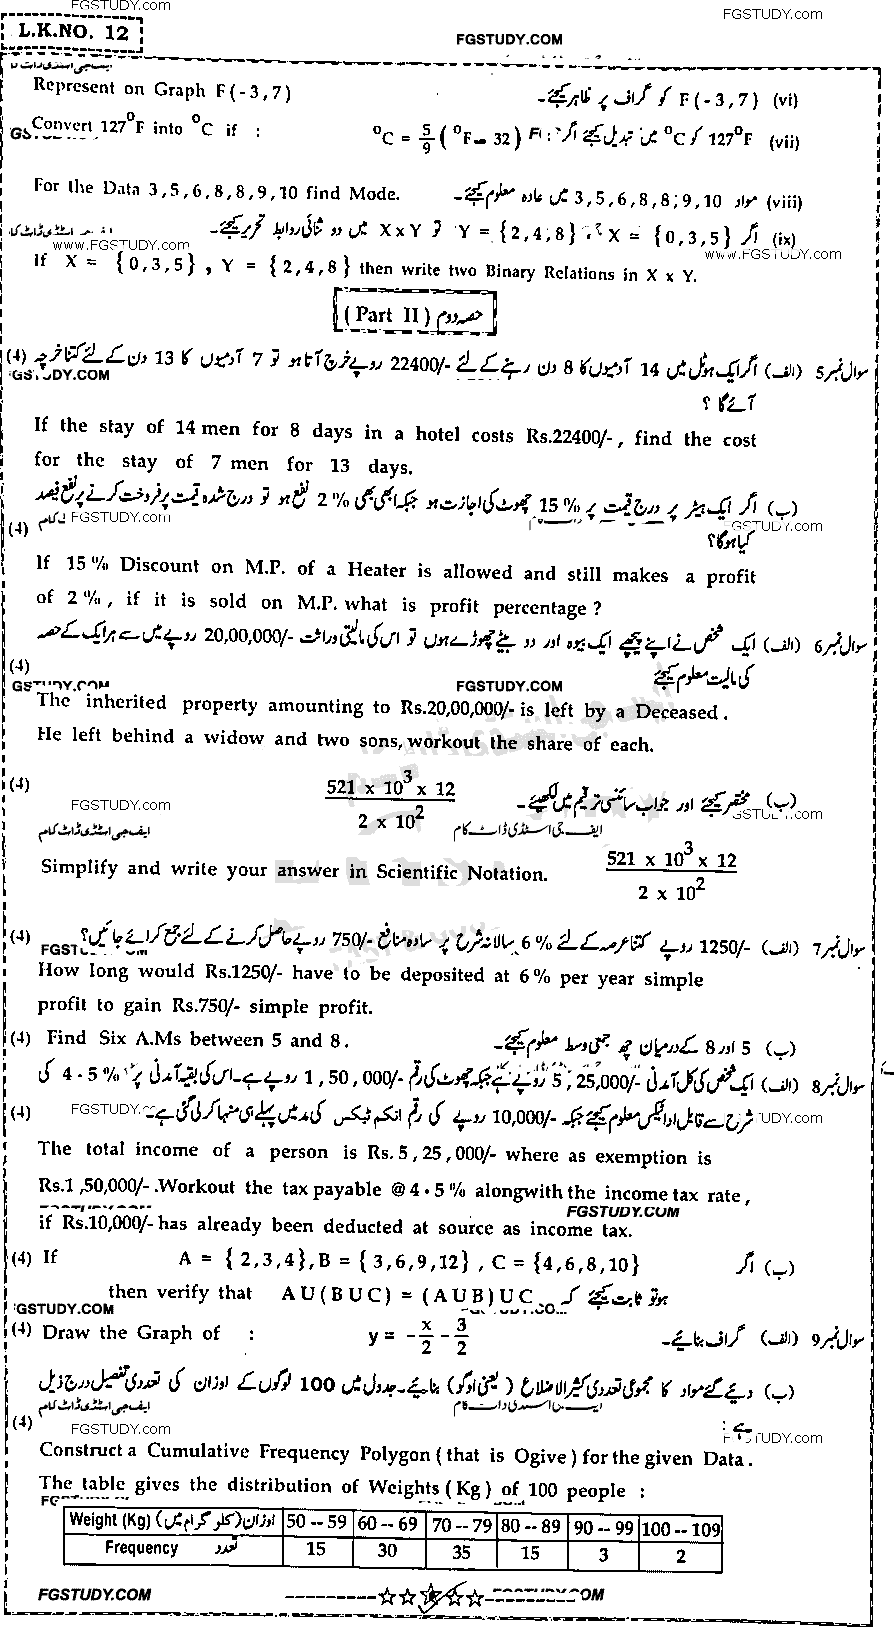 FGSTUDY.COM
FGSTUDY.COM
L.K.NO. 12
FGSTUDY.COM
Represent on Graph F(-3,7)
(vi) F(-3,7) کو گراف پر ظاہر کیجئے۔
Convert 127⁰F into ⁰C if :
(vii) 127⁰F کو ⁰C میں تبدیل کیجئے اگر: ⁰C = 5/9 (⁰F - 32)
For the Data 3,5,6,8,8,9,10 find Mode.
(viii) مواد 3,5,6,8,8;9,10 میں عادہ معلوم کیجئے۔
(ix) اگر X = {0,3,5} ، Y = {2,4,8} تو X x Y میں دو ثنائی روابط تحریر کیجئے۔
www.FGSTUDY.COM
www.FGSTUDY.COM
If X = {0,3,5}, Y = {2,4,8} then write two Binary Relations in X x Y.
(Part II) حصہ دوم
سوال نمبر 5 (الف) اگر ایک ہوٹل میں 14 آدمیوں کا 8 دن رہنے کے لئے 22400/- روپے خرچ آتا ہو تو 7 آدمیوں کا 13 دن کے لئے کتنا خرچہ (4)
آئے گا ؟
If the stay of 14 men for 8 days in a hotel costs Rs.22400/-, find the cost
for the stay of 7 men for 13 days.
(ب) اگر ایک ہیٹر پر درج قیمت پر 15% چھوٹ کی اجازت ہو جبکہ ابھی بھی 2% نفع ہو تو درج شدہ قیمت پر فروخت کرنے پر نفع فیصد
(4) FGSTUDY.com
کیا ہوگا؟
If 15% Discount on M.P. of a Heater is allowed and still makes a profit
of 2%, if it is sold on M.P. what is profit percentage?
سوال نمبر 6 (الف) ایک شخص نے اپنے پیچھے ایک بیوہ اور دو بیٹے چھوڑے ہوں تو اس کی مالیتی وراثت 20,00,000/- روپے میں سے ہر ایک کے حصہ
(4) کی مالیت معلوم کیجئے
FGSTUDY.COM
The inherited property amounting to Rs.20,00,000/- is left by a Deceased.
He left behind a widow and two sons, workout the share of each.
(4) (521 x 10³ x 12) / (2 x 10²) (ب) مختصر کیجئے اور جواب سائنسی ترقیم میں لکھیئے۔
FGSTUDY.com
ایف جی اسٹڈی ڈاٹ کام
ایف جی اسٹڈی ڈاٹ کام
Simplify and write your answer in Scientific Notation. (521 x 10³ x 12) / (2 x 10²)
سوال نمبر 7 (الف) 1250/- روپے کتنا عرصہ کے لئے 6% سالانہ شرح پر سادہ منافع 750/- روپے حاصل کرنے کے لئے جمع کرائے جائیں؟ (4)
How long would Rs.1250/- have to be deposited at 6% per year simple
profit to gain Rs.750/- simple profit.
(4) Find Six A.Ms between 5 and 8.
(ب) 5 اور 8 کے درمیان چھ جمعی وسط معلوم کیجئے۔
سوال نمبر 8 (الف) ایک شخص کی کل آمدنی 5,25,000/- روپے ہے جبکہ چھوٹ کی رقم 1,50,000/- روپے ہے۔ اس کی بقیہ آمدنی پر 4.5% کی
(4) شرح سے قابل ادا ٹیکس معلوم کیجئے جبکہ 10,000/- روپے کی رقم انکم ٹیکس کی مد میں پہلے ہی منہا کر لی گئی ہے۔
The total income of a person is Rs. 5,25,000/- where as exemption is
Rs.1,50,000/-. Workout the tax payable @ 4.5% alongwith the income tax rate,
FGSTUDY.COM
if Rs.10,000/- has already been deducted at source as income tax.
(4) If A = {2,3,4}, B = {3,6,9,12}, C = {4,6,8,10} (ب) اگر
then verify that AU(BUC) = (AUB)UC ہو تو ثابت کیجئے کہ
(4) Draw the Graph of : y = -x/2 - 3/2 سوال نمبر 9 (الف) گراف بنائیے۔
(ب) دیئے گئے مواد کا مجموعی تعددی کثیر الاضلاع (یعنی اوگو) بنائیے۔ جدول میں 100 لوگوں کے اوزان کی تعددی تفصیل درج ذیل
ایف جی اسٹڈی ڈاٹ کام
(4) ہے :
FGSTUDY.com
Construct a Cumulative Frequency Polygon (that is Ogive) for the given Data.
The table gives the distribution of Weights (Kg) of 100 people :
Weight (Kg) اوزان (کلو گرام میں) 50--59 60--69 70--79 80--89 90--99 100--109
Frequency تعدد 15 30 35 15 3 2
FGSTUDY.COM